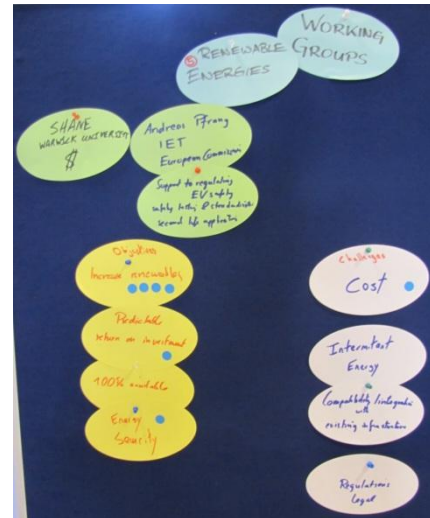 WORKING
GROUPS
⑤ RENEWABLE
ENERGIES
SHANE
WARWICK UNIVERSITY
$
Andreas Pfrang
IET
European Commission
Support to regulating
EU safety
safety testing & standardisation
second life application
Objectives
Increase renewables
Predictable
return on investment
100% available
Energy
Security
Challenges
Cost
Intermittent
Energy
Compatibility/integration
with
existing infrastructure
Regulations
Legal